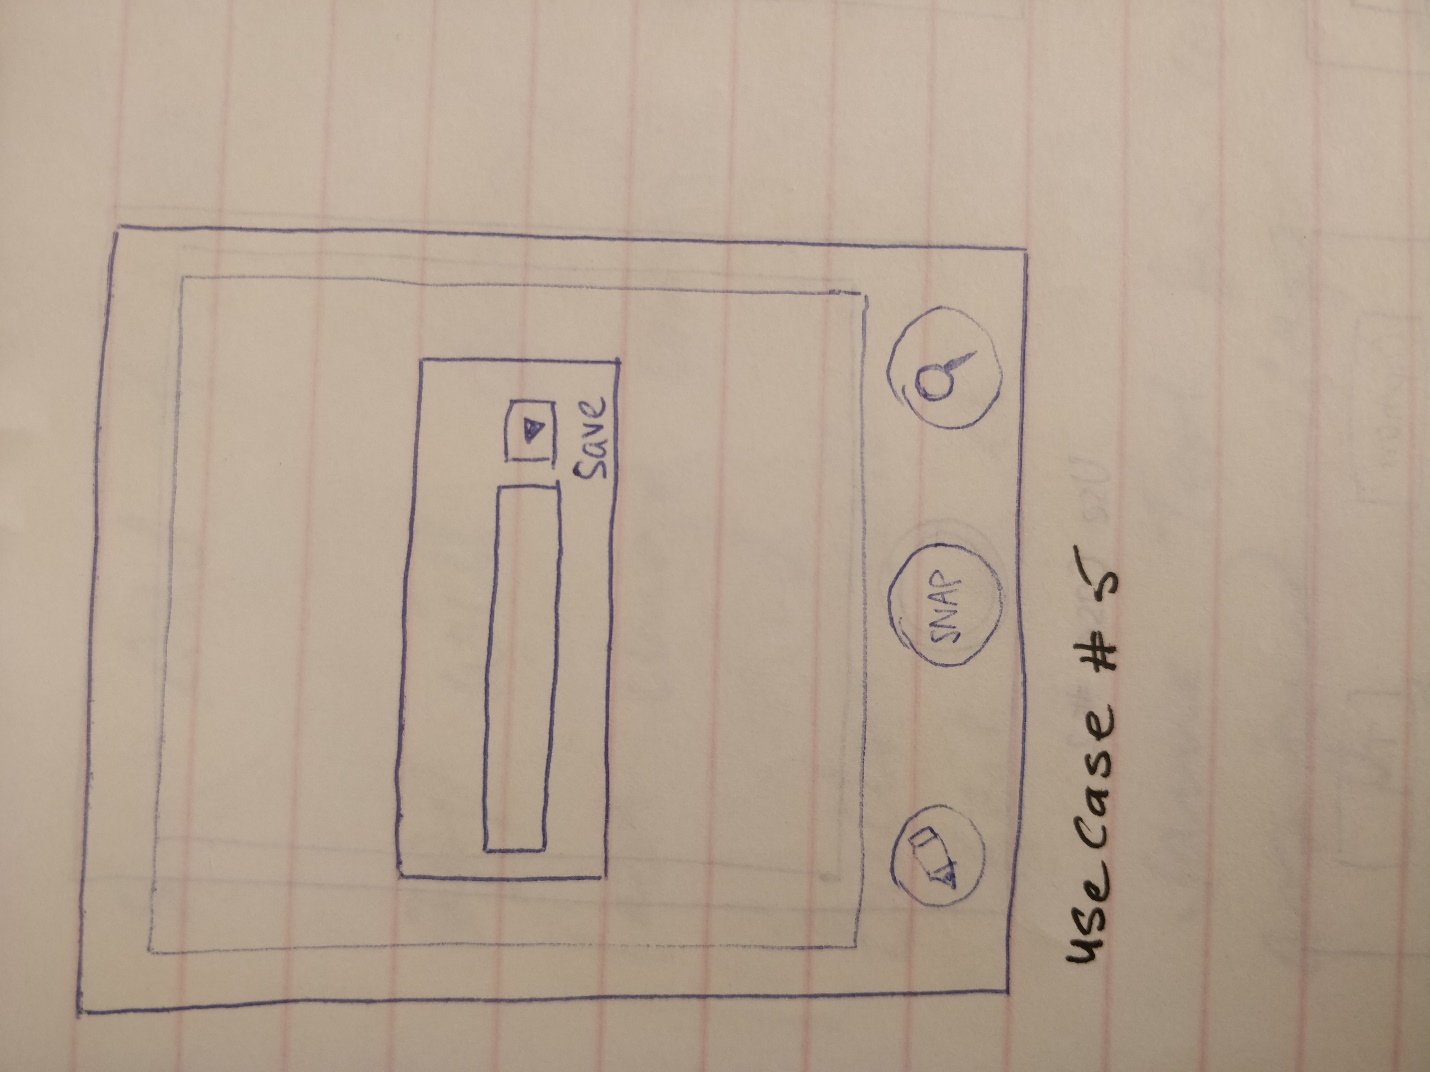 Save
SNAP
use case # 5